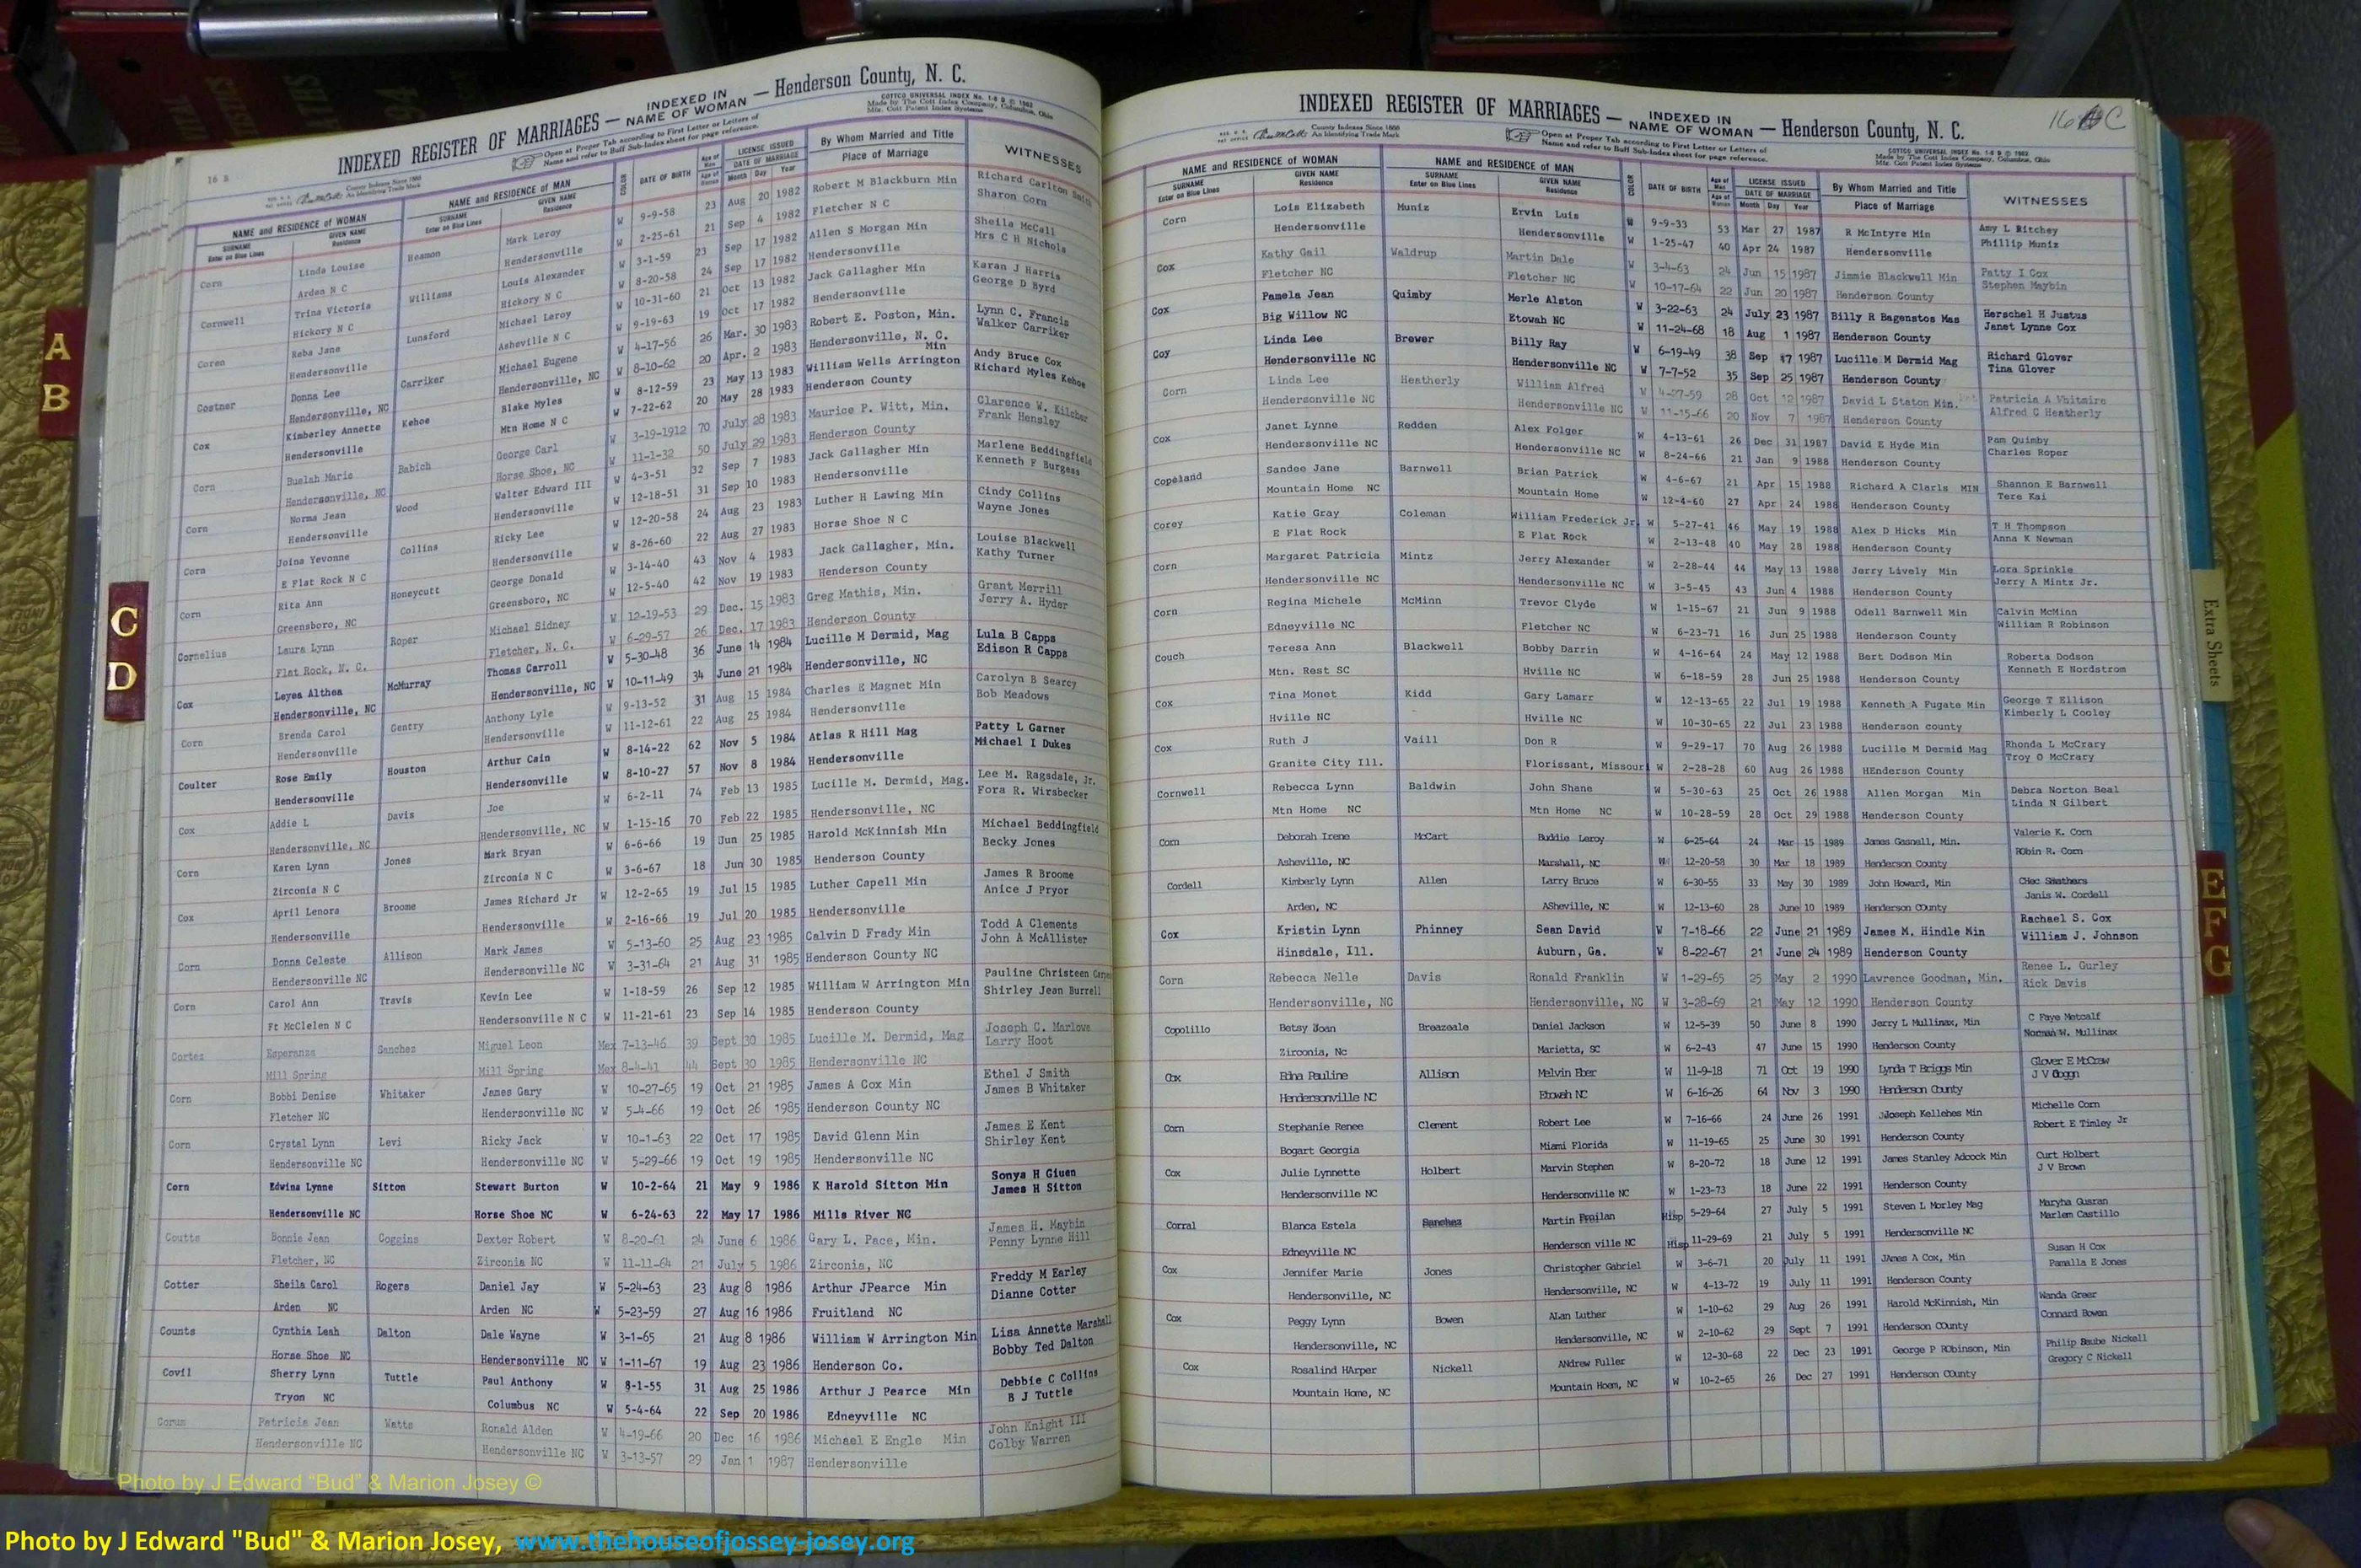 INDEXED REGISTER OF MARRIAGES — INDEXED IN NAME OF WOMAN — Henderson County, N. C.
COTTCO UNIVERSAL INDEX No. 1-6 B © 1962
Made by The Cott Index Company, Columbus, Ohio
Mfr. Cott Patent Index Systems
16 B
County Indexes Since 1888
An Identifying Trade Mark
Open at Proper Tab according to First Letter or Letters of
Name and refer to Buff Sub-Index sheet for page reference.
NAME and RESIDENCE OF WOMAN NAME and RESIDENCE OF MAN COLOR DATE OF BIRTH Age of Man LICENSE ISSUED By Whom Married and Title WITNESSES
SURNAME GIVEN NAME SURNAME GIVEN NAME Age of Woman DATE OF MARRIAGE Place of Marriage
Enter on Blue Lines Residence Enter on Blue Lines Residence Month Day Year
Corn Linda Louise Heamon Mark Leroy W 9-9-58 23 Aug 20 1982 Robert M Blackburn Min Richard Carlton Smith
Arden N C Hendersonville W 2-25-61 21 Sep 4 1982 Fletcher N C Sharon Corn
Cornwell Trina Victoria Williams Louis Alexander W 3-1-59 23 Sep 17 1982 Allen S Morgan Min Sheila McCall
Hickory N C Hickory N C W 8-20-58 24 Sep 17 1982 Hendersonville Mrs C H Nichols
Coren Reba Jane Lunsford Michael Leroy W 10-31-60 21 Oct 13 1982 Jack Gallagher Min Karan J Harris
Hendersonville Asheville N C W 9-19-63 19 Oct 17 1982 Hendersonville George D Byrd
Costner Donna Lee Carriker Michael Eugene W 4-17-56 26 Mar. 30 1983 Robert E. Poston, Min. Lynn C. Francis
Hendersonville, NC Hendersonville, NC W 8-10-62 20 Apr. 2 1983 Hendersonville, N. C. Walker Carriker
Cox Kimberley Annette Kehoe Blake Myles W 8-12-59 23 May 13 1983 William Wells Arrington Min Andy Bruce Cox
Hendersonville Mtn Home N C W 7-22-62 20 May 28 1983 Henderson County Richard Myles Kehoe
Corn Buelah Marie Babich George Carl W 3-19-1912 70 July 28 1983 Maurice P. Witt, Min. Clarence W. Kilcher
Hendersonville, NC Horse Shoe, NC W 11-1-32 50 July 29 1983 Henderson County Frank Hensley
Corn Norma Jean Wood Walter Edward III W 4-3-51 32 Sep 7 1983 Jack Gallagher Min Marlene Beddingfield
Hendersonville Hendersonville W 12-18-51 31 Sep 10 1983 Hendersonville Kenneth F Burgess
Corn Joina Yevonne Collins Ricky Lee W 12-20-58 24 Aug 23 1983 Luther H Lawing Min Cindy Collins
E Flat Rock N C Hendersonville W 8-26-60 22 Aug 27 1983 Horse Shoe N C Wayne Jones
Corn Rita Ann Honeycutt George Donald W 3-14-40 43 Nov 4 1983 Jack Gallagher, Min. Louise Blackwell
Greensboro, NC Greensboro, NC W 12-5-40 42 Nov 19 1983 Henderson County Kathy Turner
Cornelius Laura Lynn Roper Michael Sidney W 12-19-53 29 Dec. 15 1983 Greg Mathis, Min. Grant Merrill
Flat Rock, N. C. Fletcher, N. C. W 6-29-57 26 Dec. 17 1983 Henderson County Jerry A. Hyder
Cox Leyea Althea McMurray Thomas Carroll W 5-30-48 36 June 14 1984 Lucille M Dermid, Mag Lula B Capps
Hendersonville, NC Hendersonville, NC W 10-11-49 34 June 21 1984 Hendersonville, NC Edison R Capps
Corn Brenda Carol Gentry Anthony Lyle W 9-13-52 31 Aug 15 1984 Charles E Magnet Min Carolyn B Searcy
Hendersonville Hendersonville W 11-12-61 22 Aug 25 1984 Hendersonville Bob Meadows
Coulter Rose Emily Houston Arthur Cain W 8-14-22 62 Nov 5 1984 Atlas R Hill Mag Patty L Garner
Hendersonville Hendersonville W 8-10-27 57 Nov 8 1984 Hendersonville Michael I Dukes
Cox Addie L Davis Joe W 6-2-11 74 Feb 13 1985 Lucille M. Dermid, Mag. Lee M. Ragsdale, Jr.
Hendersonville, NC Hendersonville, NC W 1-15-16 70 Feb 22 1985 Hendersonville, NC Fora R. Wirsbecker
Corn Karen Lynn Jones Mark Bryan W 6-6-66 19 Jun 25 1985 Harold McKinnish Min Michael Beddingfield
Zirconia N C Zirconia N C W 3-6-67 18 Jun 30 1985 Henderson County Becky Jones
Cox April Lenora Broome James Richard Jr W 12-2-65 19 Jul 15 1985 Luther Capell Min James R Broome
Hendersonville Hendersonville W 2-16-66 19 Jul 20 1985 Hendersonville Anice J Pryor
Corn Donna Celeste Allison Mark James W 5-13-60 25 Aug 23 1985 Calvin D Frady Min Todd A Clements
Hendersonville NC Hendersonville NC W 3-31-64 21 Aug 31 1985 Henderson County NC John A McAllister
Corn Carol Ann Travis Kevin Lee W 1-18-59 26 Sep 12 1985 William W Arrington Min Pauline Christeen
Ft McClelen N C Hendersonville N C W 11-21-61 23 Sep 14 1985 Henderson County Shirley Jean Burrell
Cortez Esperanza Sanchez Miguel Leon Mex 7-13-46 39 Sept 30 1985 Lucille M. Dermid, Mag Joseph C. Marlowe
Mill Spring Mill Spring Mex 8-4-41 44 Sept 30 1985 Hendersonville NC Larry Hoot
Corn Bobbi Denise Whitaker James Gary W 10-27-65 19 Oct 21 1985 James A Cox Min Ethel J Smith
Fletcher NC Hendersonville NC W 5-4-66 19 Oct 26 1985 Henderson County NC James B Whitaker
Corn Crystal Lynn Levi Ricky Jack W 10-1-63 22 Oct 17 1985 David Glenn Min James E Kent
Hendersonville NC Hendersonville NC W 5-29-66 19 Oct 19 1985 Hendersonville NC Shirley Kent
Corn Edwina Lynne Sitton Stewart Burton W 10-2-64 21 May 9 1986 K Harold Sitton Min Sonya H Giuen
Hendersonville NC Horse Shoe NC W 6-24-63 22 May 17 1986 Mills River NC James H Sitton
Coutts Bonnie Jean Coggins Dexter Robert W 8-20-61 24 June 6 1986 Gary L. Pace, Min. James H. Maybin
Fletcher, NC Zirconia NC W 11-11-64 21 July 5 1986 Zirconia, NC Penny Lynne Hill
Cotter Sheila Carol Rogers Daniel Jay W 5-24-63 23 Aug 8 1986 Arthur JPearce Min Freddy M Earley
Arden NC Arden NC W 5-23-59 27 Aug 16 1986 Fruitland NC Dianne Cotter
Counts Cynthia Leah Dalton Dale Wayne W 3-1-65 21 Aug 8 1986 William W Arrington Min Lisa Annette Marshall
Horse Shoe NC Hendersonville NC W 1-11-67 19 Aug 23 1986 Henderson Co. Bobby Ted Dalton
Covil Sherry Lynn Tuttle Paul Anthony W 8-1-55 31 Aug 25 1986 Arthur J Pearce Min Debbie C Collins
Tryon NC Columbus NC W 5-4-64 22 Sep 20 1986 Edneyville NC B J Tuttle
Corum Patricia Jean Watts Ronald Alden W 4-19-66 20 Dec 16 1986 Michael E Engle Min John Knight III
Hendersonville NC Hendersonville NC W 3-13-57 29 Jan 1 1987 Hendersonville Colby Warren
INDEXED REGISTER OF MARRIAGES — INDEXED IN NAME OF WOMAN — Henderson County, N. C.
16 C
County Indexes Since 1888
An Identifying Trade Mark
Open at Proper Tab according to First Letter or Letters of
Name and refer to Buff Sub-Index sheet for page reference.
COTTCO UNIVERSAL INDEX No. 1-6 B © 1962
Made by The Cott Index Company, Columbus, Ohio
Mfr. Cott Patent Index Systems
NAME and RESIDENCE OF WOMAN NAME and RESIDENCE OF MAN COLOR DATE OF BIRTH Age of Man LICENSE ISSUED By Whom Married and Title WITNESSES
SURNAME GIVEN NAME SURNAME GIVEN NAME Age of Woman DATE OF MARRIAGE Place of Marriage
Enter on Blue Lines Residence Enter on Blue Lines Residence Month Day Year
Corn Lois Elizabeth Muniz Ervin Luis W 9-9-33 53 Mar 27 1987 R McIntyre Min Amy L Ritchey
Hendersonville Hendersonville W 1-25-47 40 Apr 24 1987 Hendersonville Phillip Muniz
Cox Kathy Gail Waldrup Martin Dale W 3-4-63 24 Jun 15 1987 Jimmie Blackwell Min Patty I Cox
Fletcher NC Fletcher NC W 10-17-64 22 Jun 20 1987 Henderson County Stephen Maybin
Cox Pamela Jean Quimby Merle Alston W 3-22-63 24 July 23 1987 Billy R Bagenstos Mas Herschel H Justus
Big Willow NC Etowah NC W 11-24-68 18 Aug 1 1987 Henderson County Janet Lynne Cox
Coy Linda Lee Brewer Billy Ray W 6-19-49 38 Sep 17 1987 Lucille M Dermid Mag Richard Glover
Hendersonville NC Hendersonville NC W 7-7-52 35 Sep 25 1987 Henderson County Tina Glover
Corn Linda Lee Heatherly William Alfred W 4-27-59 28 Oct 12 1987 David L Staton Min. Patricia A Whitmire
Hendersonville NC Hendersonville NC W 11-15-66 20 Nov 7 1987 Henderson County Alfred C Heatherly
Cox Janet Lynne Redden Alex Folger W 4-13-61 26 Dec 31 1987 David E Hyde Min Pam Quimby
Hendersonville NC Hendersonville NC W 8-24-66 21 Jan 9 1988 Henderson County Charles Roper
Copeland Sandee Jane Barnwell Brian Patrick W 4-6-67 21 Apr 15 1988 Richard A Clarls MIN Shannon E Barnwell
Mountain Home NC Mountain Home W 12-4-60 27 Apr 24 1988 Henderson County Tere Kai
Corey Katie Gray Coleman William Frederick Jr W 5-27-41 46 May 19 1988 Alex D Hicks Min T H Thompson
E Flat Rock E Flat Rock W 2-13-48 40 May 28 1988 Henderson County Anna K Newman
Corn Margaret Patricia Mintz Jerry Alexander W 2-28-44 44 May 13 1988 Jerry Lively Min Lora Sprinkle
Hendersonville NC Hendersonville NC W 3-5-45 43 Jun 4 1988 Henderson County Jerry A Mintz Jr.
Corn Regina Michele McMinn Trevor Clyde W 1-15-67 21 Jun 9 1988 Odell Barnwell Min Calvin McMinn
Edneyville NC Fletcher NC W 6-23-71 16 Jun 25 1988 Henderson County William R Robinson
Couch Teresa Ann Blackwell Bobby Darrin W 4-16-64 24 May 12 1988 Bert Dodson Min Roberta Dodson
Mtn. Rest SC Hville NC W 6-18-59 28 Jun 25 1988 Henderson County Kenneth E Nordstrom
Cox Tina Monet Kidd Gary Lamarr W 12-13-65 22 Jul 19 1988 Kenneth A Fugate Min George T Ellison
Hville NC Hville NC W 10-30-65 22 Jul 23 1988 Henderson county Kimberly L Cooley
Cox Ruth J Vaill Don R W 9-29-17 70 Aug 26 1988 Lucille M Dermid Mag Rhonda L McCrary
Granite City Ill. Florissant, Missouri W 2-28-28 60 Aug 26 1988 HEnderson County Troy O McCrary
Cornwell Rebecca Lynn Baldwin John Shane W 5-30-63 25 Oct 26 1988 Allen Morgan Min Debra Norton Beal
Mtn Home NC Mtn Home NC W 10-28-59 28 Oct 29 1988 Henderson County Linda N Gilbert
Corn Deborah Irene McCart Buddie Leroy W 6-25-64 24 Mar 15 1989 James Gasnell, Min. Valerie K. Corn
Asheville, NC Marshall, NC W 12-20-58 30 Mar 18 1989 Henderson County RObin R. Corn
Cordell Kimberly Lynn Allen Larry Bruce W 6-30-55 33 May 30 1989 John Howard, Min
Arden, NC ASheville, NC W 12-13-60 28 June 10 1989 Henderson COunty Janis W. Cordell
Cox Kristin Lynn Phinney Sean David W 7-18-66 22 June 21 1989 James M. Hindle Min Rachael S. Cox
Hinsdale, Ill. Auburn, Ga. W 8-22-67 21 June 24 1989 Henderson County William J. Johnson
Corn Rebecca Nelle Davis Ronald Franklin W 1-29-65 25 May 2 1990 Lawrence Goodman, Min. Renee L. Gurley
Hendersonville, NC Hendersonville, NC W 3-28-69 21 May 12 1990 Henderson County Rick Davis
Copolillo Betsy Joan Breazeale Daniel Jackson W 12-5-39 50 June 8 1990 Jerry L Mullinax, Min C Faye Metcalf
Zirconia, Nc Marietta, SC W 6-2-43 47 June 15 1990 Henderson County Norman W. Mullinax
Cox Edna Pauline Allison Melvin Eber W 11-9-18 71 Oct 19 1990 Lynda T Briggs Min Glover E McCraw
Hendersonville NC Etowah NC W 6-16-26 64 Nov 3 1990 Henderson County J V
Corn Stephanie Renee Clement Robert Lee W 7-16-66 24 June 26 1991 JJoseph Kellehes Min Michelle Corn
Bogart Georgia Miami Florida W 11-19-65 25 June 30 1991 Henderson County Robert E Timley Jr
Cox Julie Lynnette Holbert Marvin Stephen W 8-20-72 18 June 12 1991 James Stanley Adcock Min Curt Holbert
Hendersonville NC Hendersonville NC W 1-23-73 18 June 22 1991 Henderson County J V Brown
Corral Blanca Estela Sanchez Martin Froilan Hisp 5-29-64 27 July 5 1991 Steven L Morley Mag Maryha Gusran
Edneyville NC Henderson ville NC Hisp 11-29-69 21 July 5 1991 Hendersonville NC Marlem Castillo
Cox Jennifer Marie Jones Christopher Gabriel W 3-6-71 20 July 11 1991 JAmes A Cox, Min Susan H Cox
Hendersonville, NC Hendersonville, NC W 4-13-72 19 July 11 1991 Henderson County Pamalla E Jones
Cox Peggy Lynn Bowen Alan Luther W 1-10-62 29 Aug 26 1991 Harold McKinnish, Min Wanda Greer
Hendersonville, NC Hendersonville, NC W 2-10-62 29 Sept 7 1991 Henderson COunty Connard Bowen
Cox Rosalind HArper Nickell ANdrew Fuller W 12-30-68 22 Dec 23 1991 George P RObinson, Min Philip Nickell
Mountain Home, NC Mountain Hoem, NC W 10-2-65 26 Dec 27 1991 Henderson COunty Gregory C Nickell
A
B
C
D
Extra Sheets
E
F
G
Photo by J Edward “Bud” & Marion Josey ©
Photo by J Edward "Bud" & Marion Josey, www.thehouseofjossey-josey.org